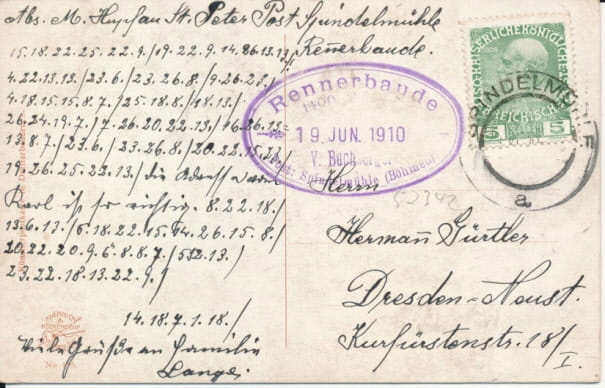 Abs. M. Hupfau St. Peter Post Spindelmühle
Rennerbaude.
15.18.22.25.22.9./19.22.9.14.86.13.13/
4.22.13.13/23.6./23.26.8/9.26.28/
4.18.15.15.8.7./25.18.8/18.13/
26.24.19.7./7.26.20.22.13./16.26.15.
13.8.7./23.6/23.26.8/20.22.15.22/
19.26.25.22.13./ die Adresse an
Karl ist so richtig. 8.22.18./
13.6.13./5.18.22.15.14.26.15.8./
20.22.20.9.6.8.8.7./552.13./
23.22.18.13.22.9./
14.18.7.1.18./
Viele Grüße an Familie
Lange.
Rennerbaude
1400
19. JUN. 1910
Post: Spindelmühle (Böhmen)
SPINDELMÜHLE
a
5
5
Herrn
Hermann Gürtler
Dresden-Neust.
Kurfürstenstr. 18/I.